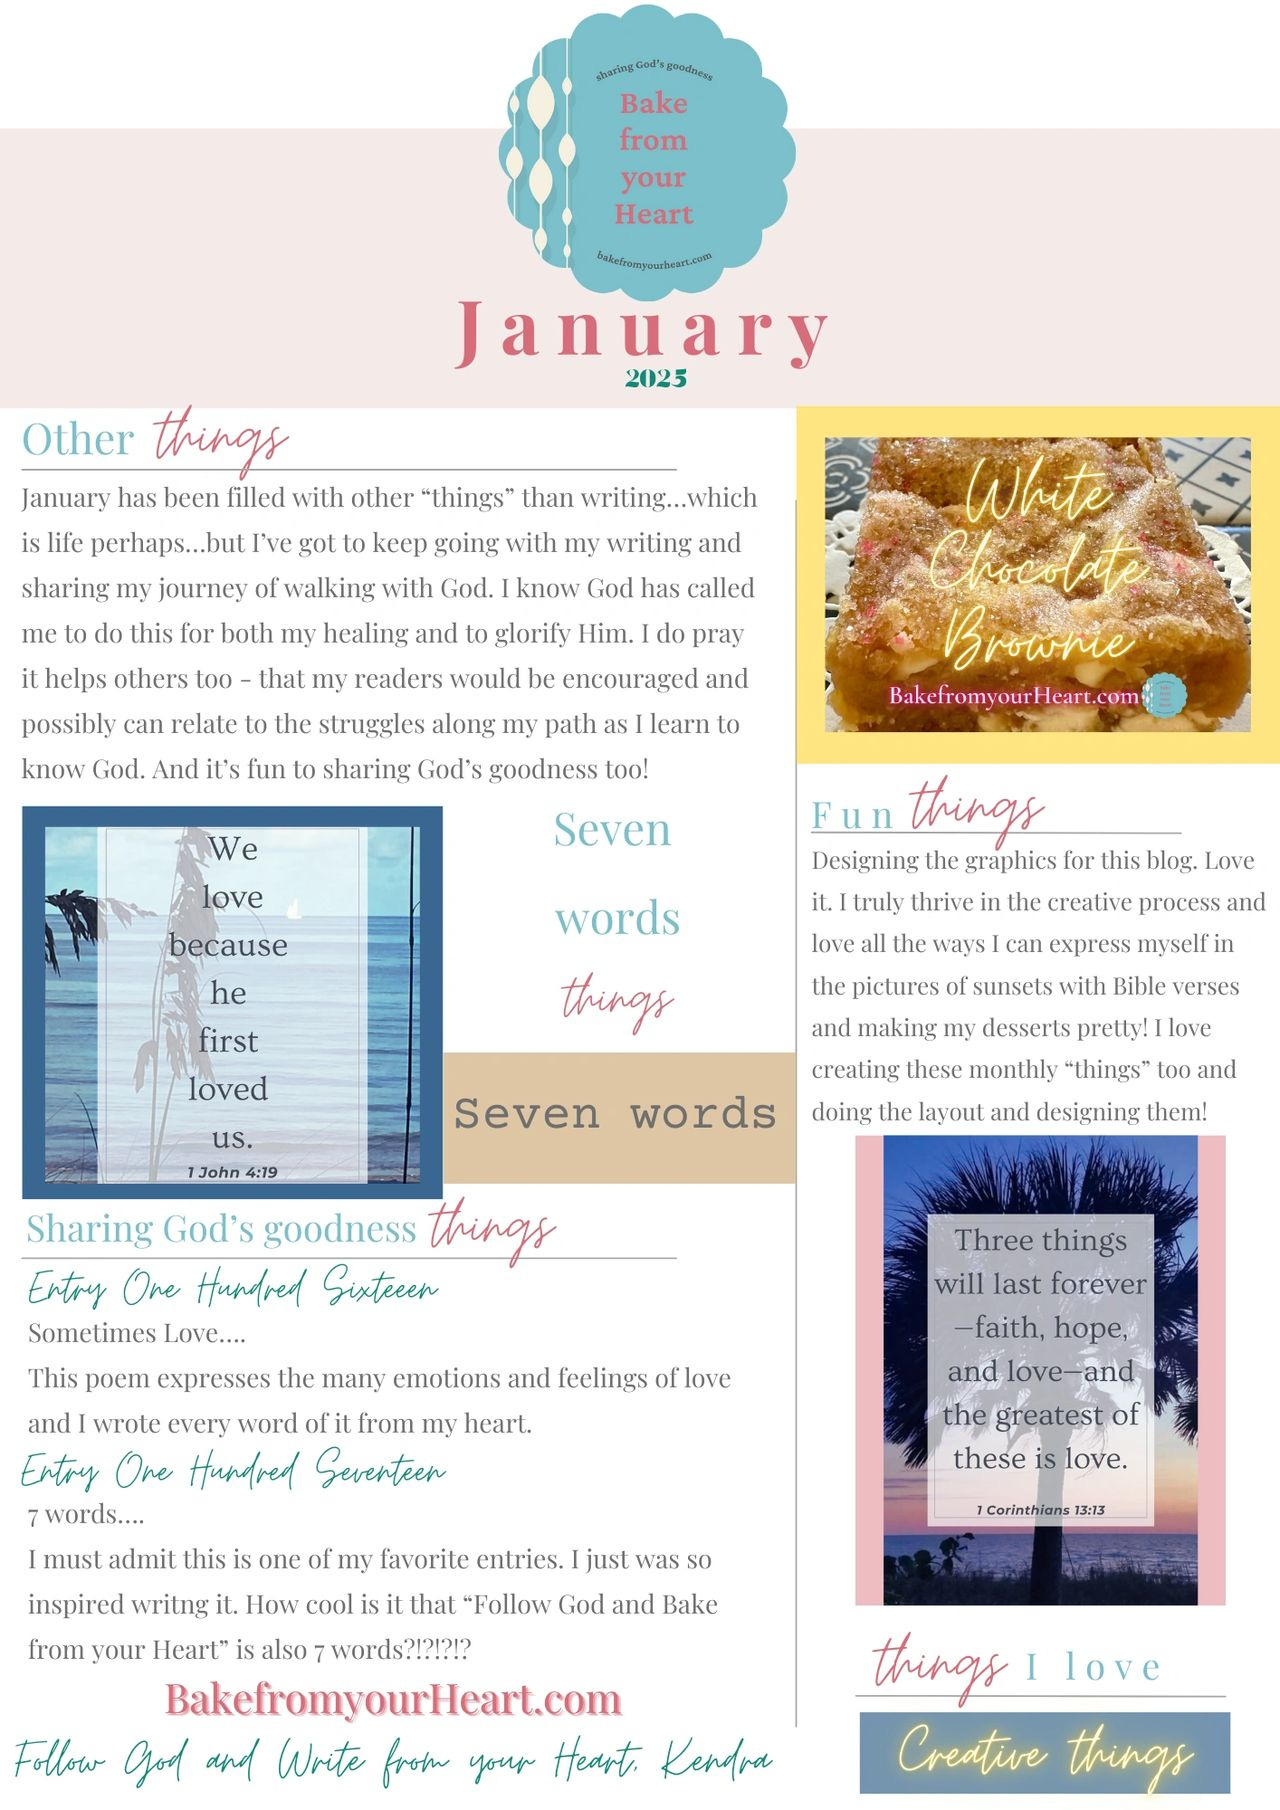 sharing God's goodness
Bake
from
your
Heart
bakefromyourheart.com
January
2025
Other things
January has been filled with other “things” than writing...which
is life perhaps...but I’ve got to keep going with my writing and
sharing my journey of walking with God. I know God has called
me to do this for both my healing and to glorify Him. I do pray
it helps others too - that my readers would be encouraged and
possibly can relate to the struggles along my path as I learn to
know God. And it’s fun to sharing God’s goodness too!
We
love
because
he
first
loved
us.
1 John 4:19
Seven
words
things
Seven words
Sharing God’s goodness things
Entry One Hundred Sixteeen
Sometimes Love....
This poem expresses the many emotions and feelings of love
and I wrote every word of it from my heart.
Entry One Hundred Seventeen
7 words....
I must admit this is one of my favorite entries. I just was so
inspired writng it. How cool is it that “Follow God and Bake
from your Heart” is also 7 words?!?!?!?
BakefromyourHeart.com
Follow God and Write from your Heart, Kendra
White
Chocolate
Brownie
BakefromyourHeart.com
Fun things
Designing the graphics for this blog. Love
it. I truly thrive in the creative process and
love all the ways I can express myself in
the pictures of sunsets with Bible verses
and making my desserts pretty! I love
creating these monthly “things” too and
doing the layout and designing them!
Three things
will last forever
—faith, hope,
and love—and
the greatest of
these is love.
1 Corinthians 13:13
things I love
Creative things